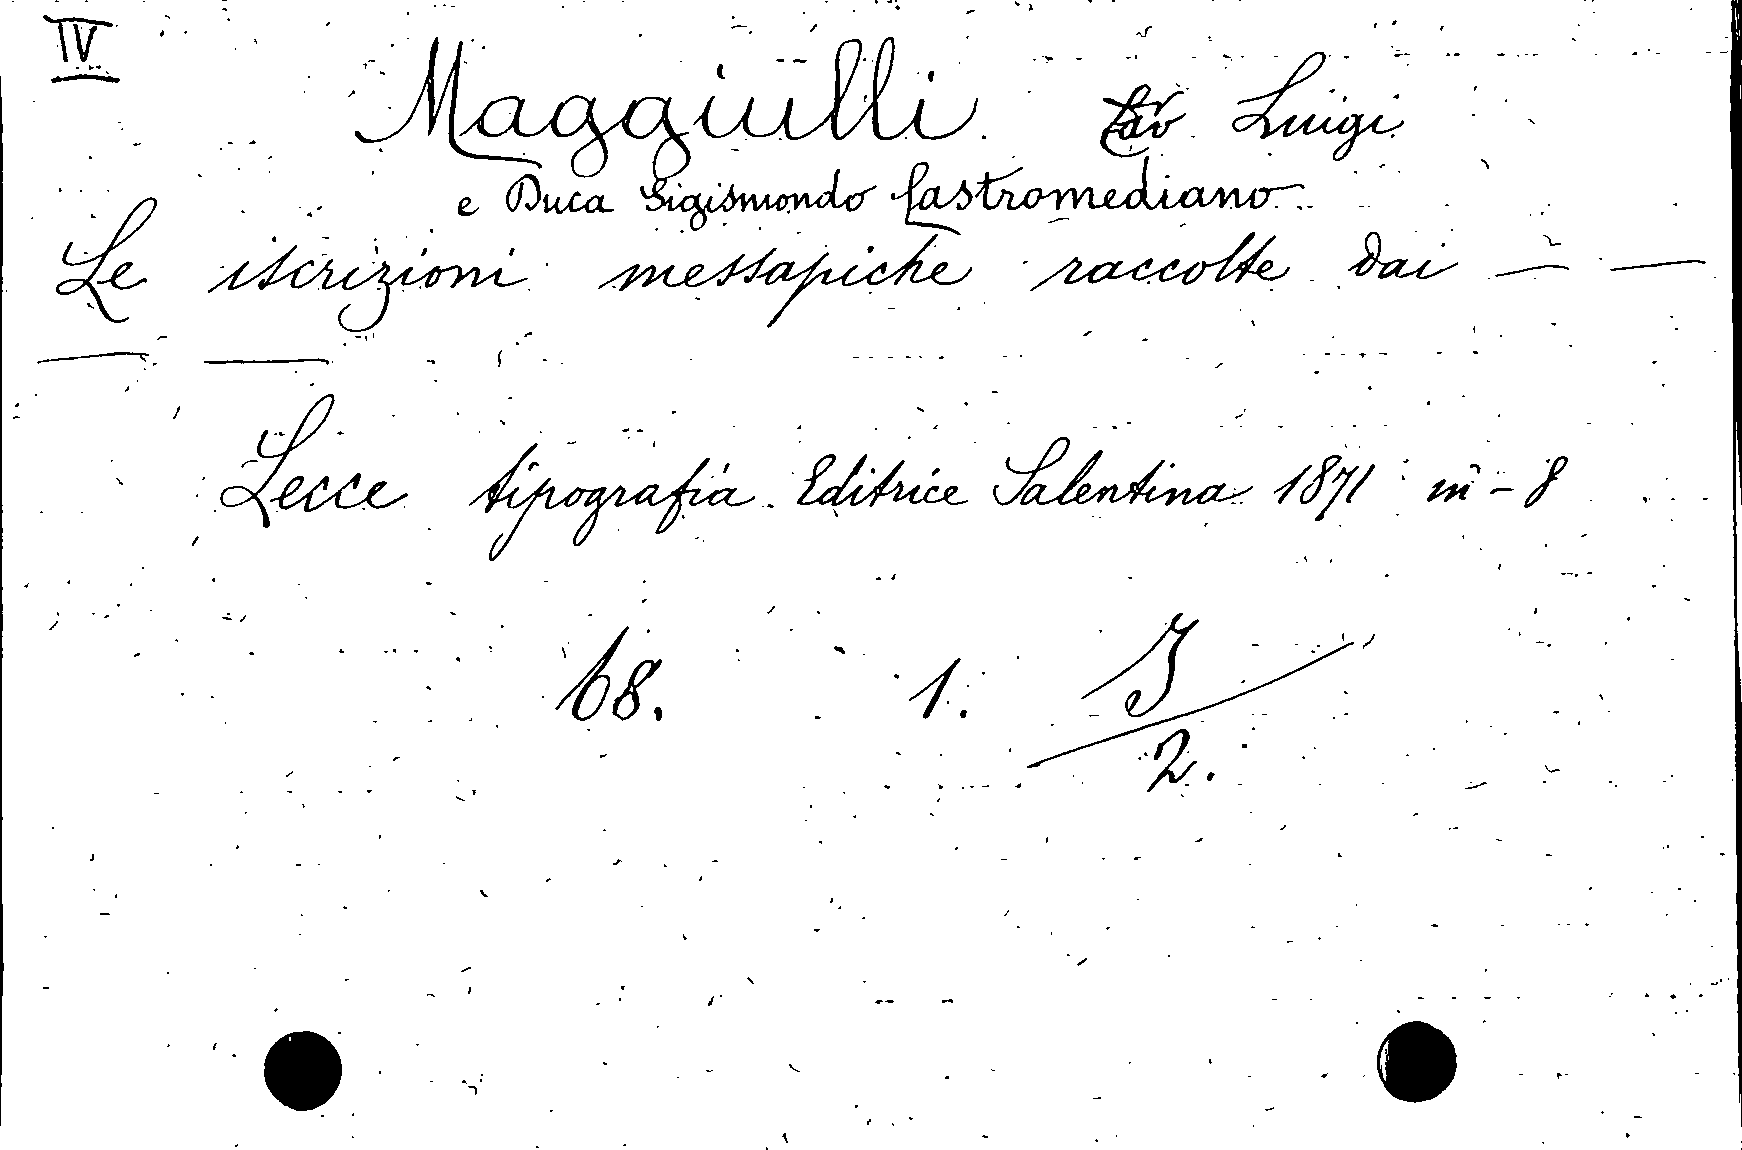 IV
Maggiulli Cav Luigi
e Duca Sigismondo Castromediano
Le iscrizioni messapiche raccolte dai — —
— —
Lecce tipografia Editrice Salentina 1871 in-8
68. 1. I
2.